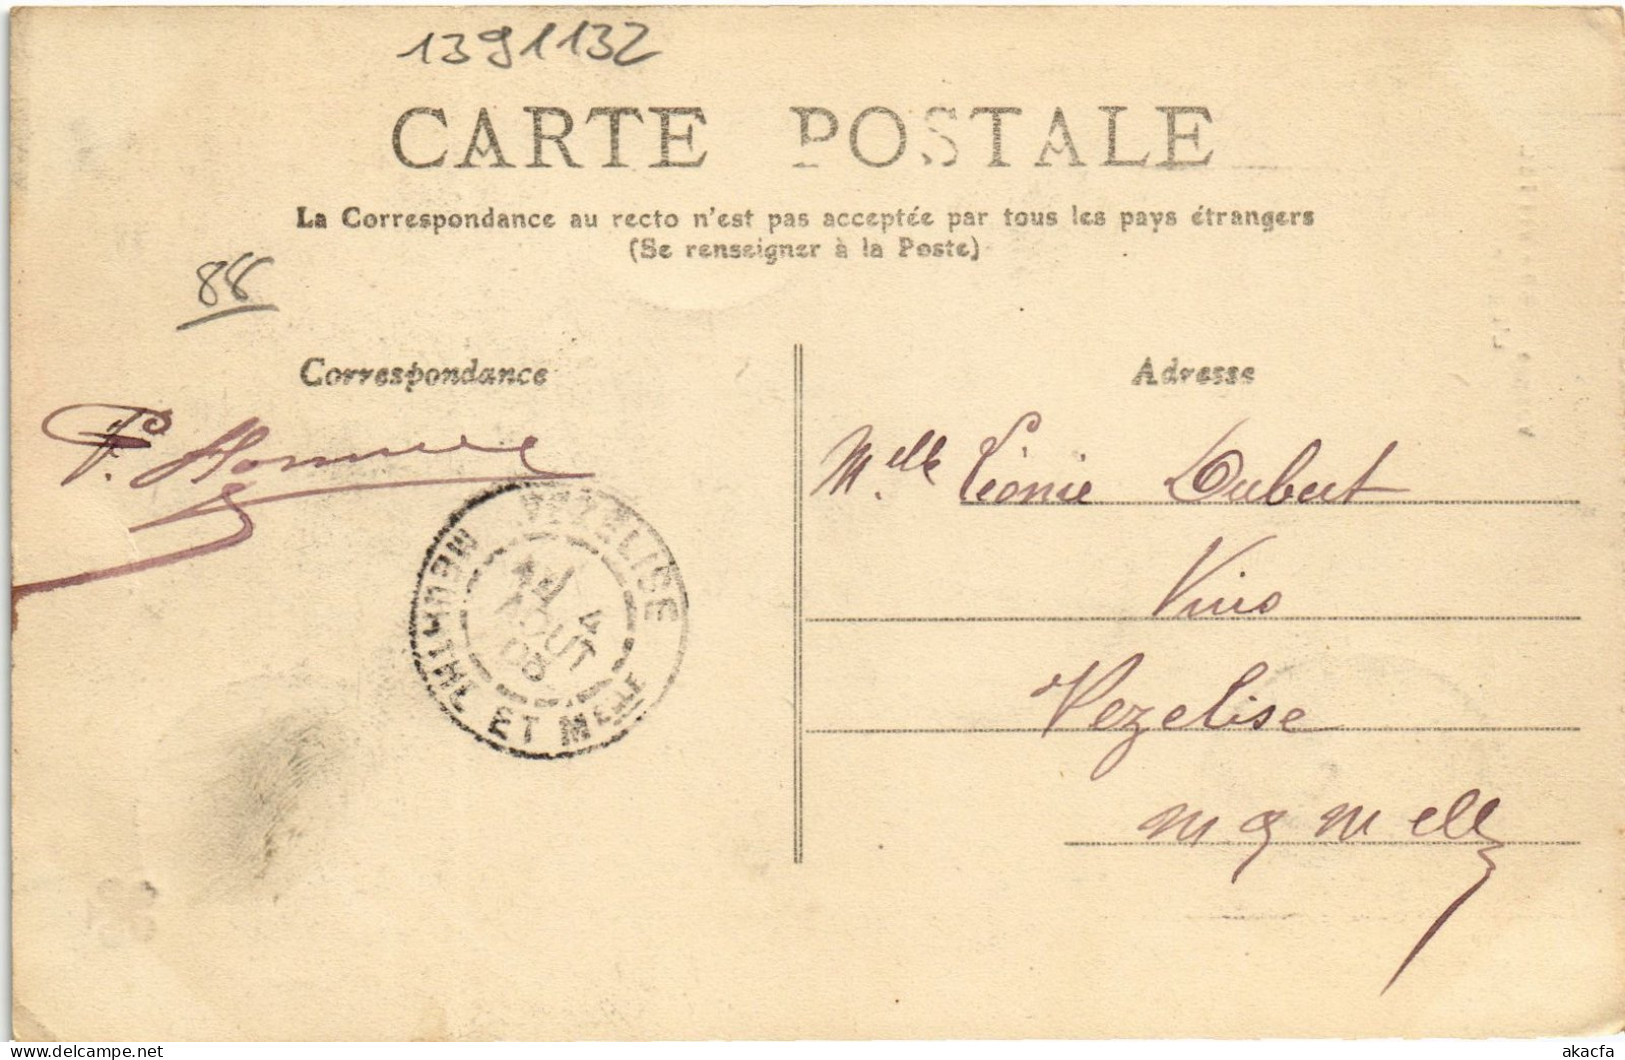 1391132
CARTE POSTALE
La Correspondance au recto n'est pas acceptée par tous les pays étrangers
(Se renseigner à la Poste)
88
Correspondance
Adresse
M.elle Léonie Dubert
Vins
Vezelise
VEZELISE
4
AOUT
08
MEURTHE ET MELLE
akacfa